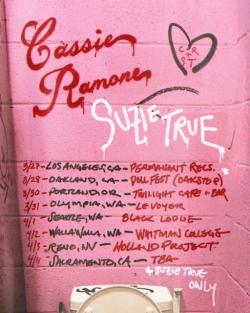 Cassie
Ramone
SUZIE TRUE
3/27 - LOS ANGELES, CA - PERMANANT RECS.
3/28 - OAKLAND, CA - DULLFEST (OAKSTOP)
3/30 - PORTLAND, OR - TWILIGHT CAFE + BAR
3/31 - OLYMPIA, WA - LE VOYEUR
4/1 - SEATTLE, WA - BLACK LODGE
4/2 - WALLA WALLA, WA - WHITMAN COLLEGE
4/3 - RENO, NV - HOLLAND PROJECT*
4/4 - SACRAMENTO, CA - TBA*
* SUZIE TRUE
ONLY